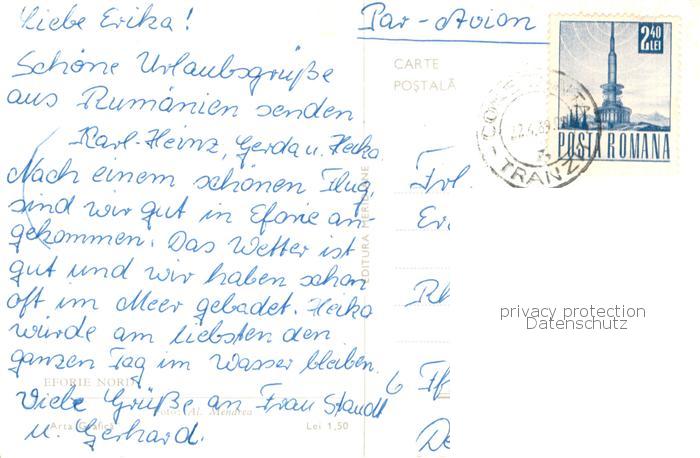 Liebe Erika!
Schöne Urlaubsgrüße
aus Rumänien senden
Karl-Heinz, Gerda u. Heika
Nach einem schönen Flug,
sind wir gut in Eforie an-
gekommen. Das Wetter ist
gut und wir haben schon
oft im Meer gebadet. Heika
würde am liebsten den
ganzen Tag im Wasser bleiben.
Viele Grüße an Frau Staudt
u. Gerhard.
EFORIE NORD
Foto: Al. Mendrea
Arta Grafică
Lei 1,50
EDITURA MERIDIANE
Par-Avion
CARTE
POȘTALĂ
2,40
LEI
POSTA ROMANA
CONSTANTA
TRANZ
Frl.
6
privacy protection
Datenschutz